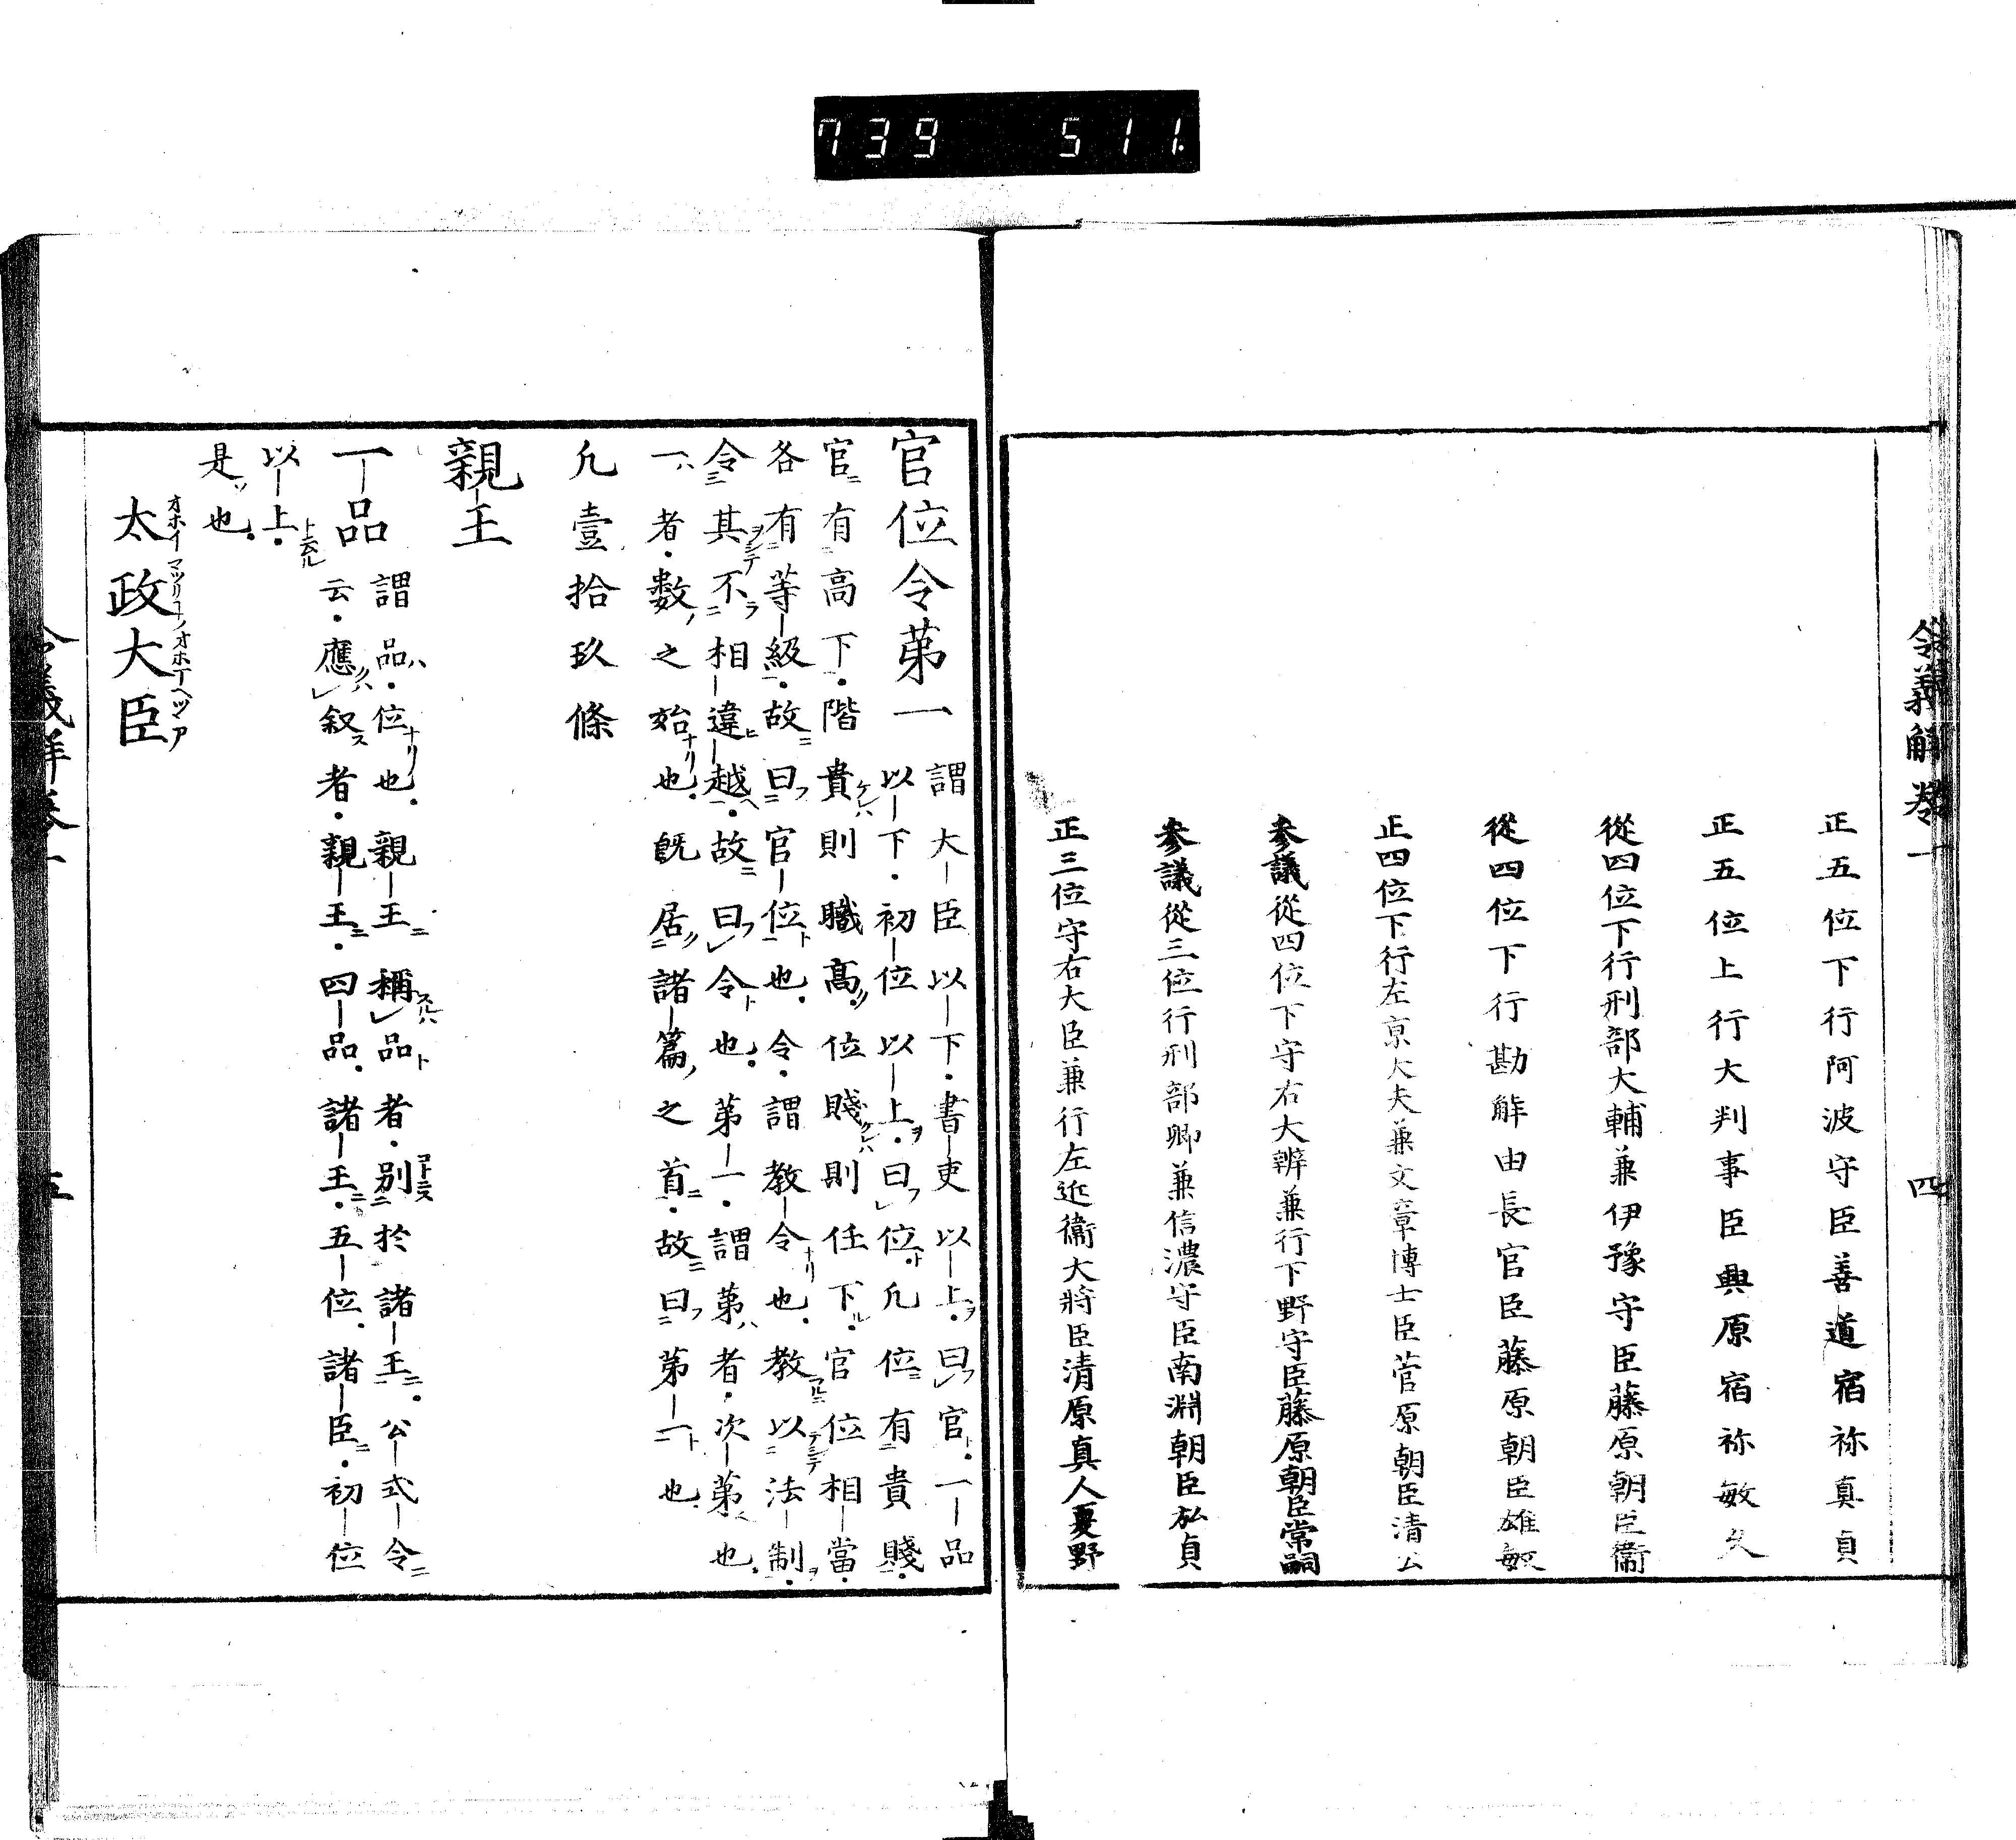 739 511.
令義解卷一
四
正五位下行阿波守臣善道宿祢真貞
正五位上行大判事臣興原宿祢敏久
從四位下行刑部大輔兼伊豫守臣藤原朝臣衞
從四位下行勘解由長官臣藤原朝臣雄敏
正四位下行左京大夫兼文章博士臣菅原朝臣清公
參議從四位下守右大辨兼行下野守臣藤原朝臣常嗣
參議從三位行刑部卿兼信濃守臣南淵朝臣弘貞
正三位守右大臣兼行左近衞大將臣清原真人夏野
官位令苐一
謂大臣以下書吏以上曰官一品
以下初位以上曰位凡位有貴賤
官有高下階貴則職高位賤則任下官位相當
各有等級故曰官位也令謂教令也教以法制
令其不相違越故曰令也苐一謂苐者次苐也
一者數之始也既居諸篇之首故曰苐一也
凡壹拾玖條
親王
一品
謂品位也親王稱品者別於諸王公式令
云應叙者親王四品諸王五位諸臣初位
以上
是也
太政大臣
オホイマツリコトノオホイマヘツア
令義解卷一
五